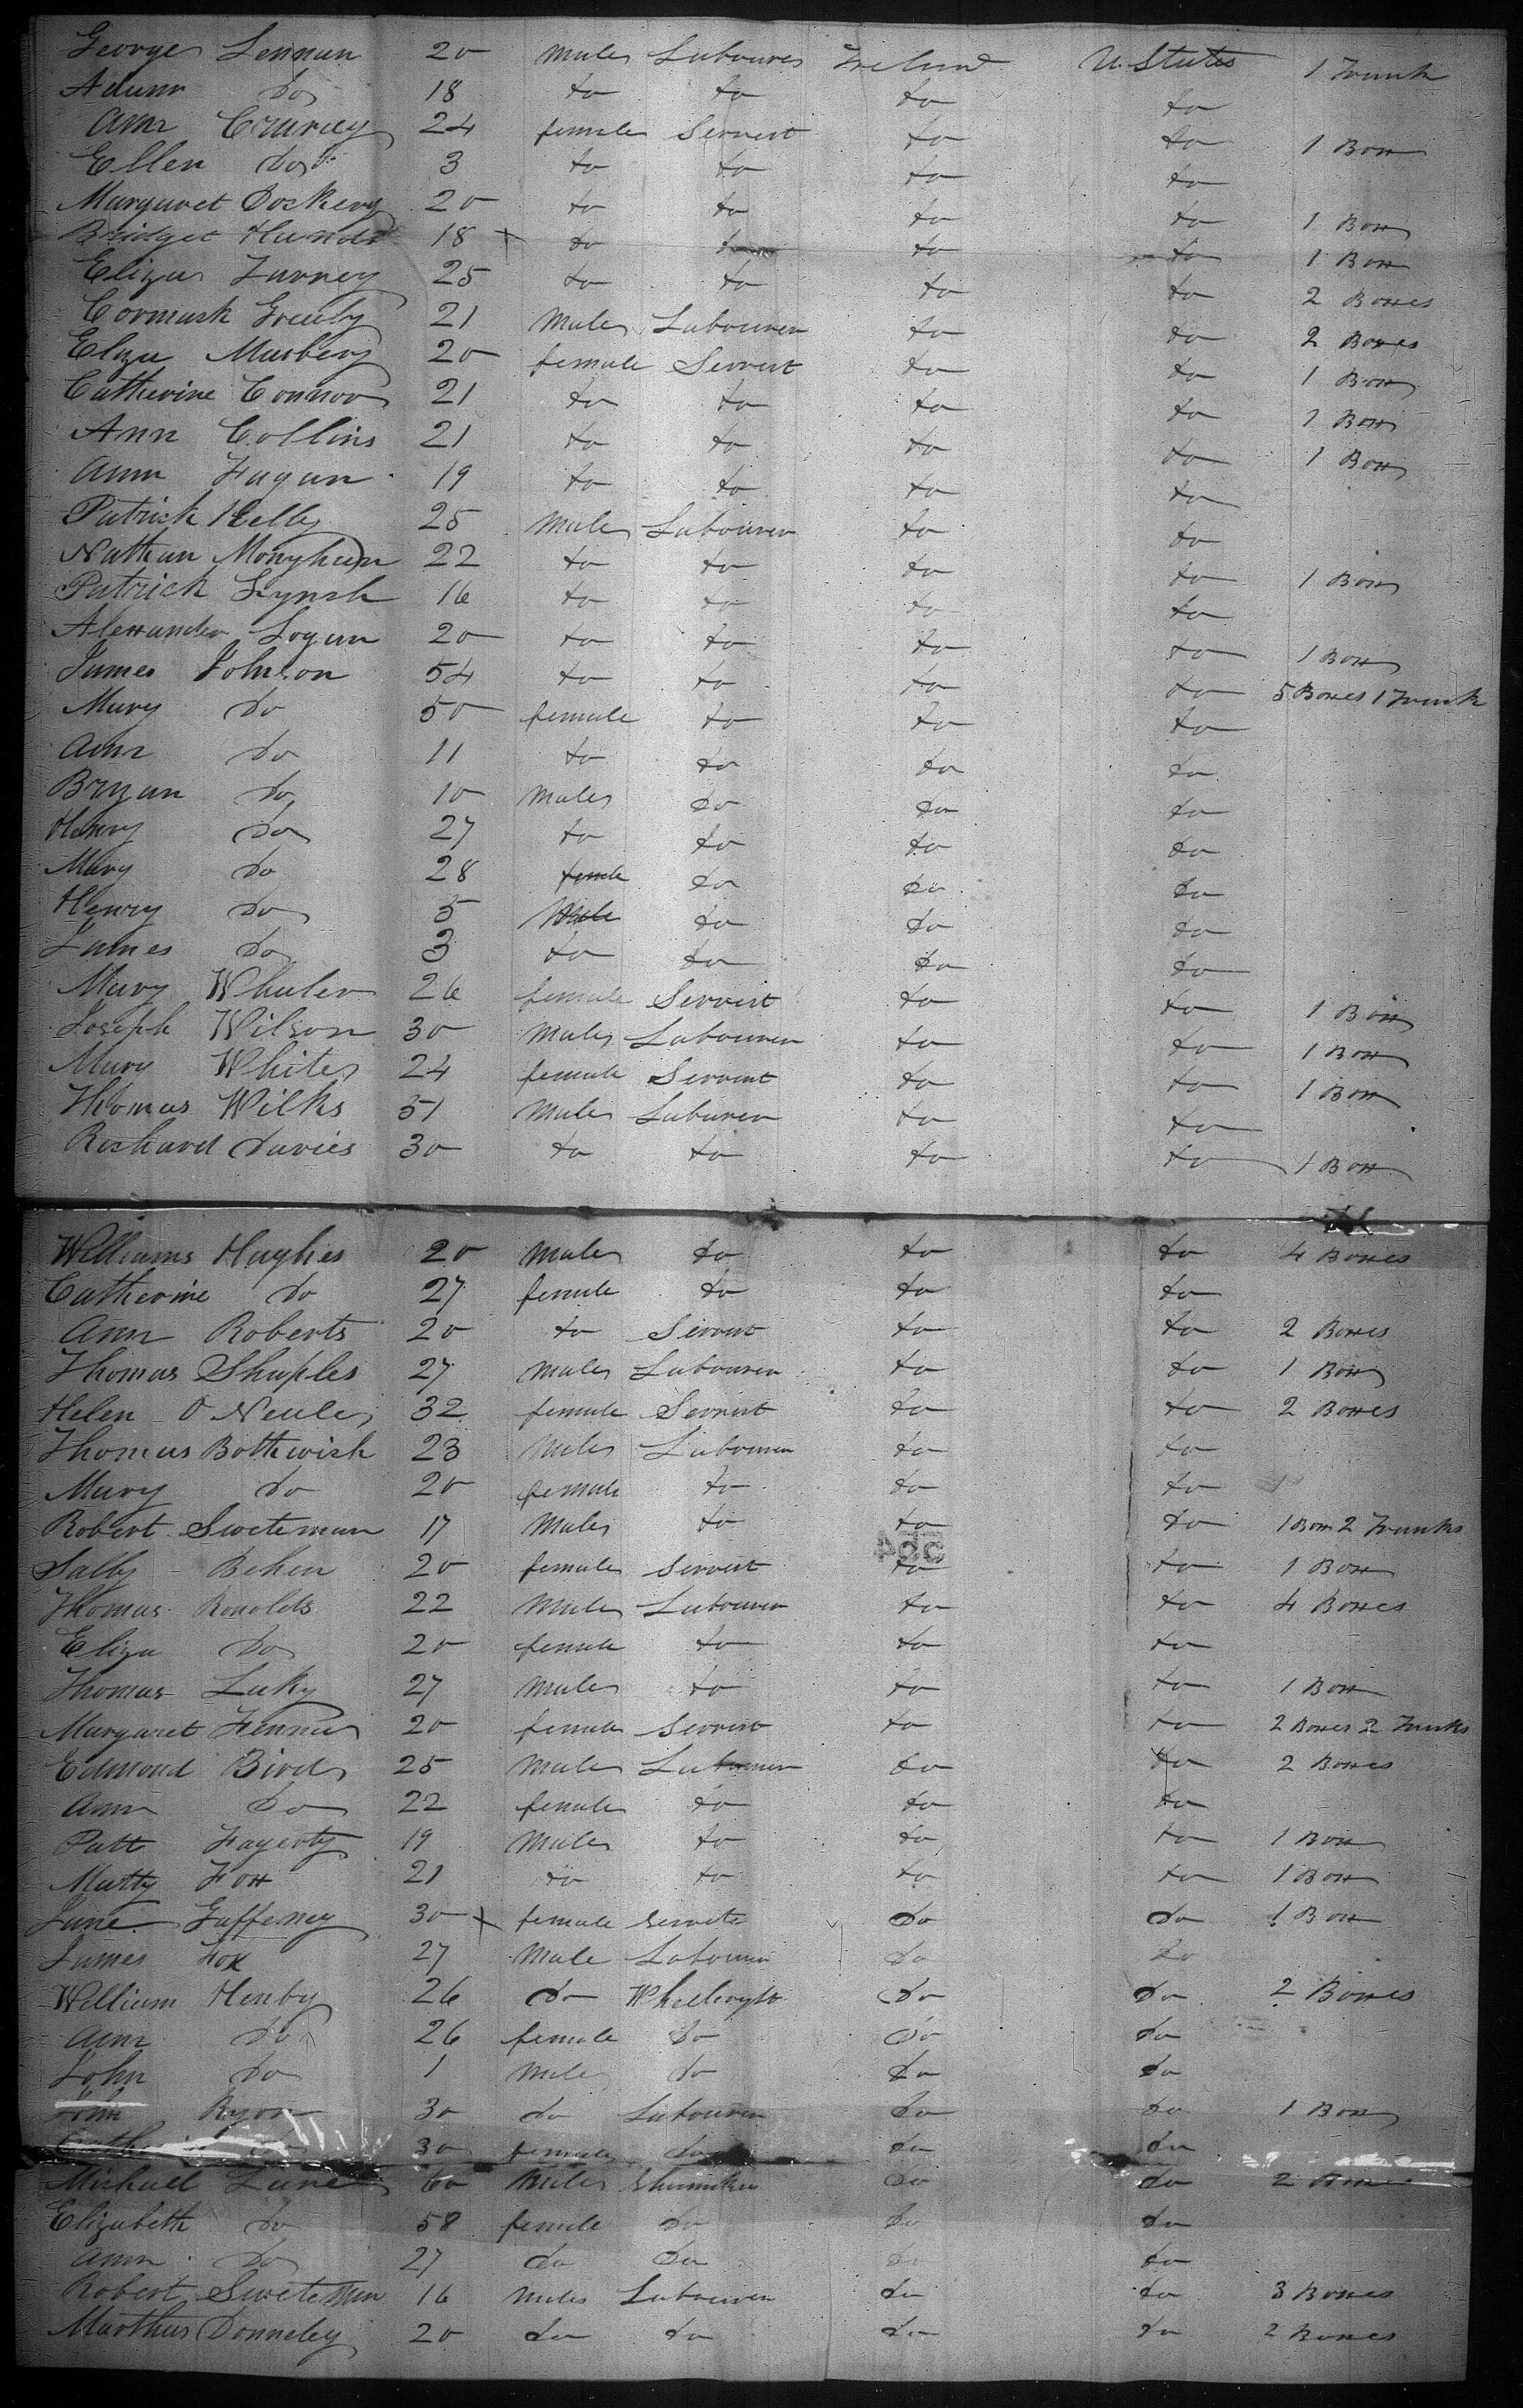 George Lennan 20 Male Labourer Ireland U. States 1 Trunk
Adam Do 18 do do do do
Ann Crarey 24 female Servant do do 1 Box
Ellen Do 3 do do do do
Margaret Dockery 20 do do do do 1 Box
Bridget 18 x do do do do 1 Box
Eliza Farney 25 do do do do 2 Boxes
Cormack Greeby 21 Male Labourer do do 2 Boxes
Eliza Masbery 20 female Servant do do 1 Box
Catherine Connor 21 do do do do 1 Box
Ann Collins 21 do do do do 1 Box
Ann Fagan 19 do do do do
Patrick Kelly 25 Male Labourer do do
Nathan Monyhan 22 do do do do 1 Box
Patrick Lynch 16 do do do do
Alexander Logan 20 do do do do 1 Box
James Johnson 54 do do do do 5 Boxes 1 Trunk
Mary do 50 female do do do
Ann do 11 do do do do
Bryan do 10 Male do do do
Henry do 27 do do do do
Mary do 28 female do do do
Henry do 5 Male do do do
James do 3 do do do do
Mary Whaler 26 female Servant do do 1 Box
Joseph Wilson 30 Male Labourer do do 1 Box
Mary White 24 female Servant do do 1 Box
Thomas Wilks 51 Male Laburer do do
Richard Davies 30 do do do do 1 Box
Williams Hughes 20 Male do do do 4 Boxes
Catherine do 27 female do do do
Ann Roberts 20 do Servant do do 2 Boxes
Thomas Shaples 27 Male Labourer do do 1 Box
Helen O Neale 32 female Servant do do 2 Boxes
Thomas Bothwick 23 Male Labourer do do
Mary do 20 female do do do
Robert Sweteman 17 Male do do do 1 Box 2 Trunks
Sally Behen 20 female Servant do do 1 Box
Thomas Ronolds 22 Male Labourer do do 4 Boxes
Eliza Do 20 female do do do
Thomas Luky 27 Male do do do 1 Box
Margaret Fennes 20 female Servant do do 2 Boxes 2 Trunks
Edmond Bird 25 Male Labourer do do 2 Boxes
Ann Do 22 female do do do
Patt Fagerty 19 Male do do do 1 Box
Matty Fox 21 do do do do 1 Box
Jane Gaffeney 30 x female Servete do do 1 Box
James Fox 27 Male Labourer do do
William Henby 26 do do do 2 Boxes
Ann do 26 female do do do
John do 1 Male do do do
John Ryon 30 do Labourer do do 1 Box
do 30 female do do do
Michael Lane 60 Male Shumaker do do 2 Boxes
Elizabeth do 58 female do do do
Ann do 27 do do do do
Robert Swetemen 16 Male Labourer do do 3 Boxes
Marthus Donneley 20 do do do do 2 Boxes